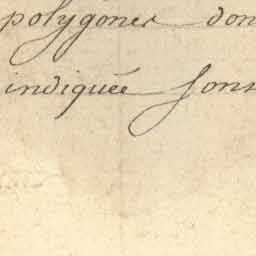 polygones don
indiquée sont